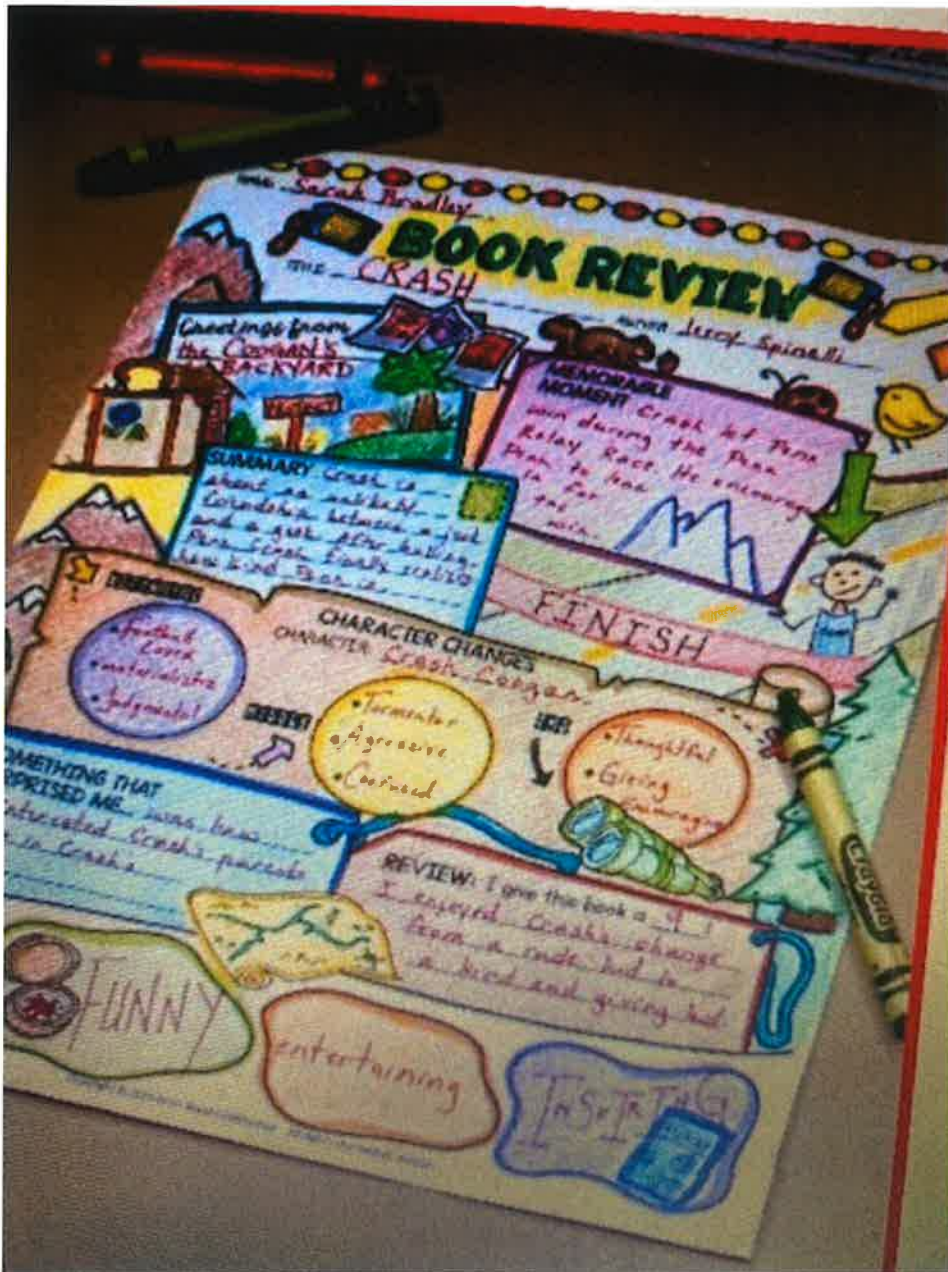 Sarah Bradley
BOOK REVIEW
TITLE CRASH
AUTHOR Jerry Spinelli
Greetings from
the COOGAN'S
BACKYARD
MEMORABLE
MOMENT Crash let Penn
win during the Penn
Relay Race. He encourag
Penn to lean
in for
the
win.
SUMMARY Crash is
about an unlikely
between a jock
and a geek. After bullying
Penn, Crash finally
how kind Penn is
FINISH
CHARACTER CHANGES
CHARACTER Crash Coogan
• Football
Lover
• materialistic
• Judgmental
• Tormentor
• Agressive
• Confused
• Thoughtful
• Giving
• Encouraging
OMETHING THAT
RPRISED ME was how
Crash's parents
in Crash's
REVIEW: I give this book a
I enjoyed Crash's change
from a rude kid to
a kind and giving kid.
FUNNY
entertaining
Crayola